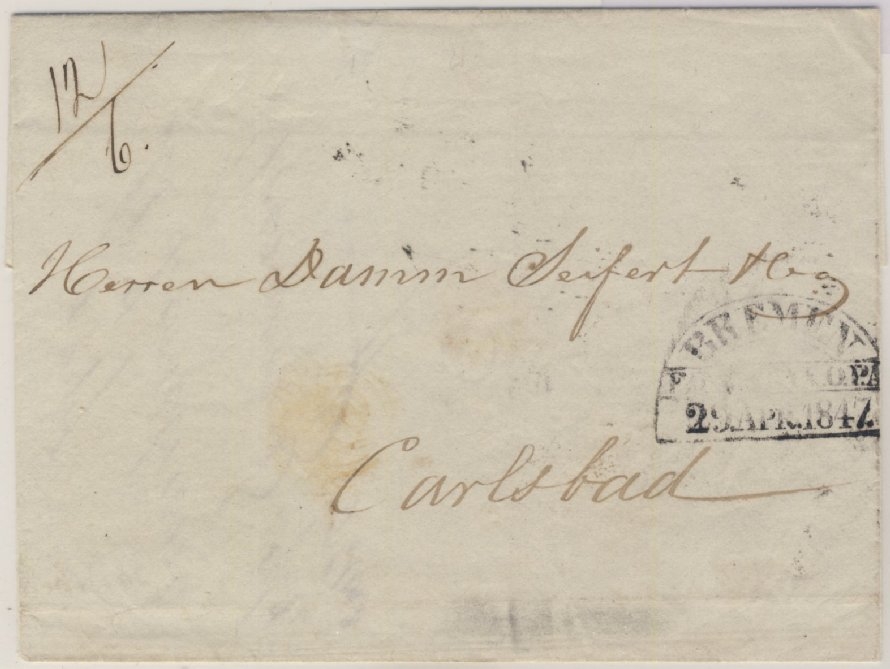 12/6.
Herren Damm Seifert & Co
BREMEN
29.APR.1847.
Carlsbad